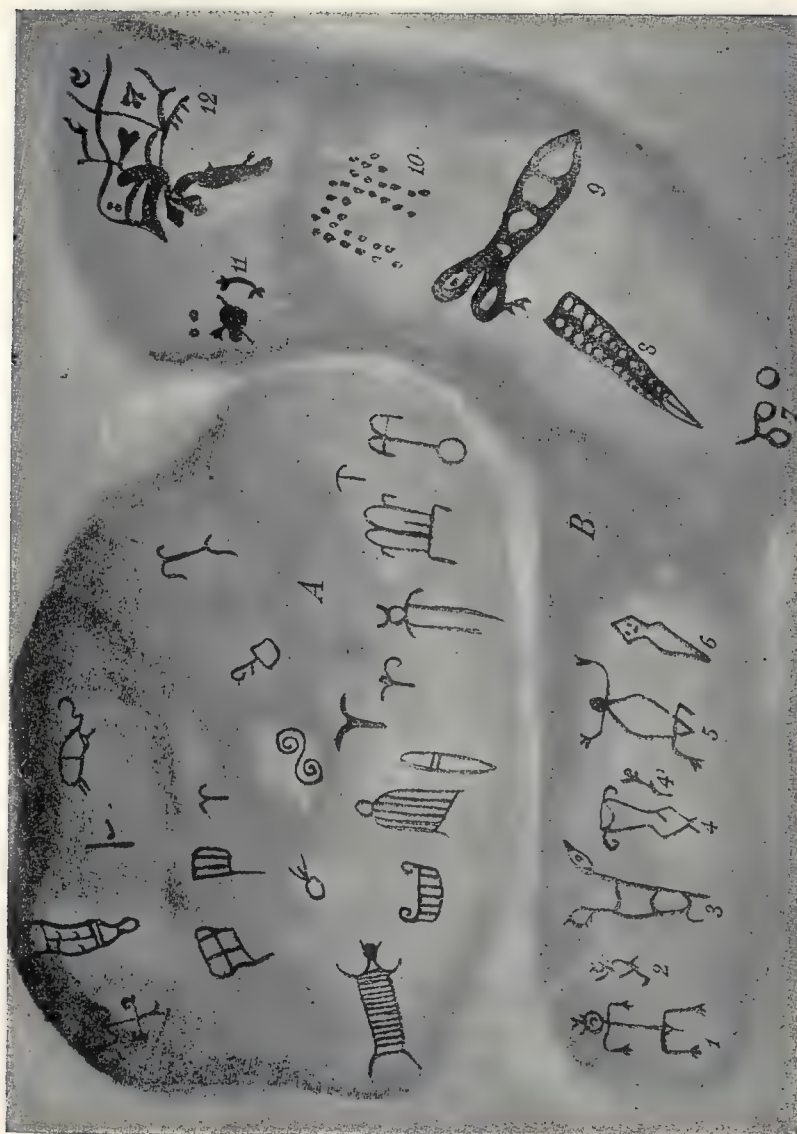 A
B
1
2
3
4
4'
5
6
7
8
9
10
11
12